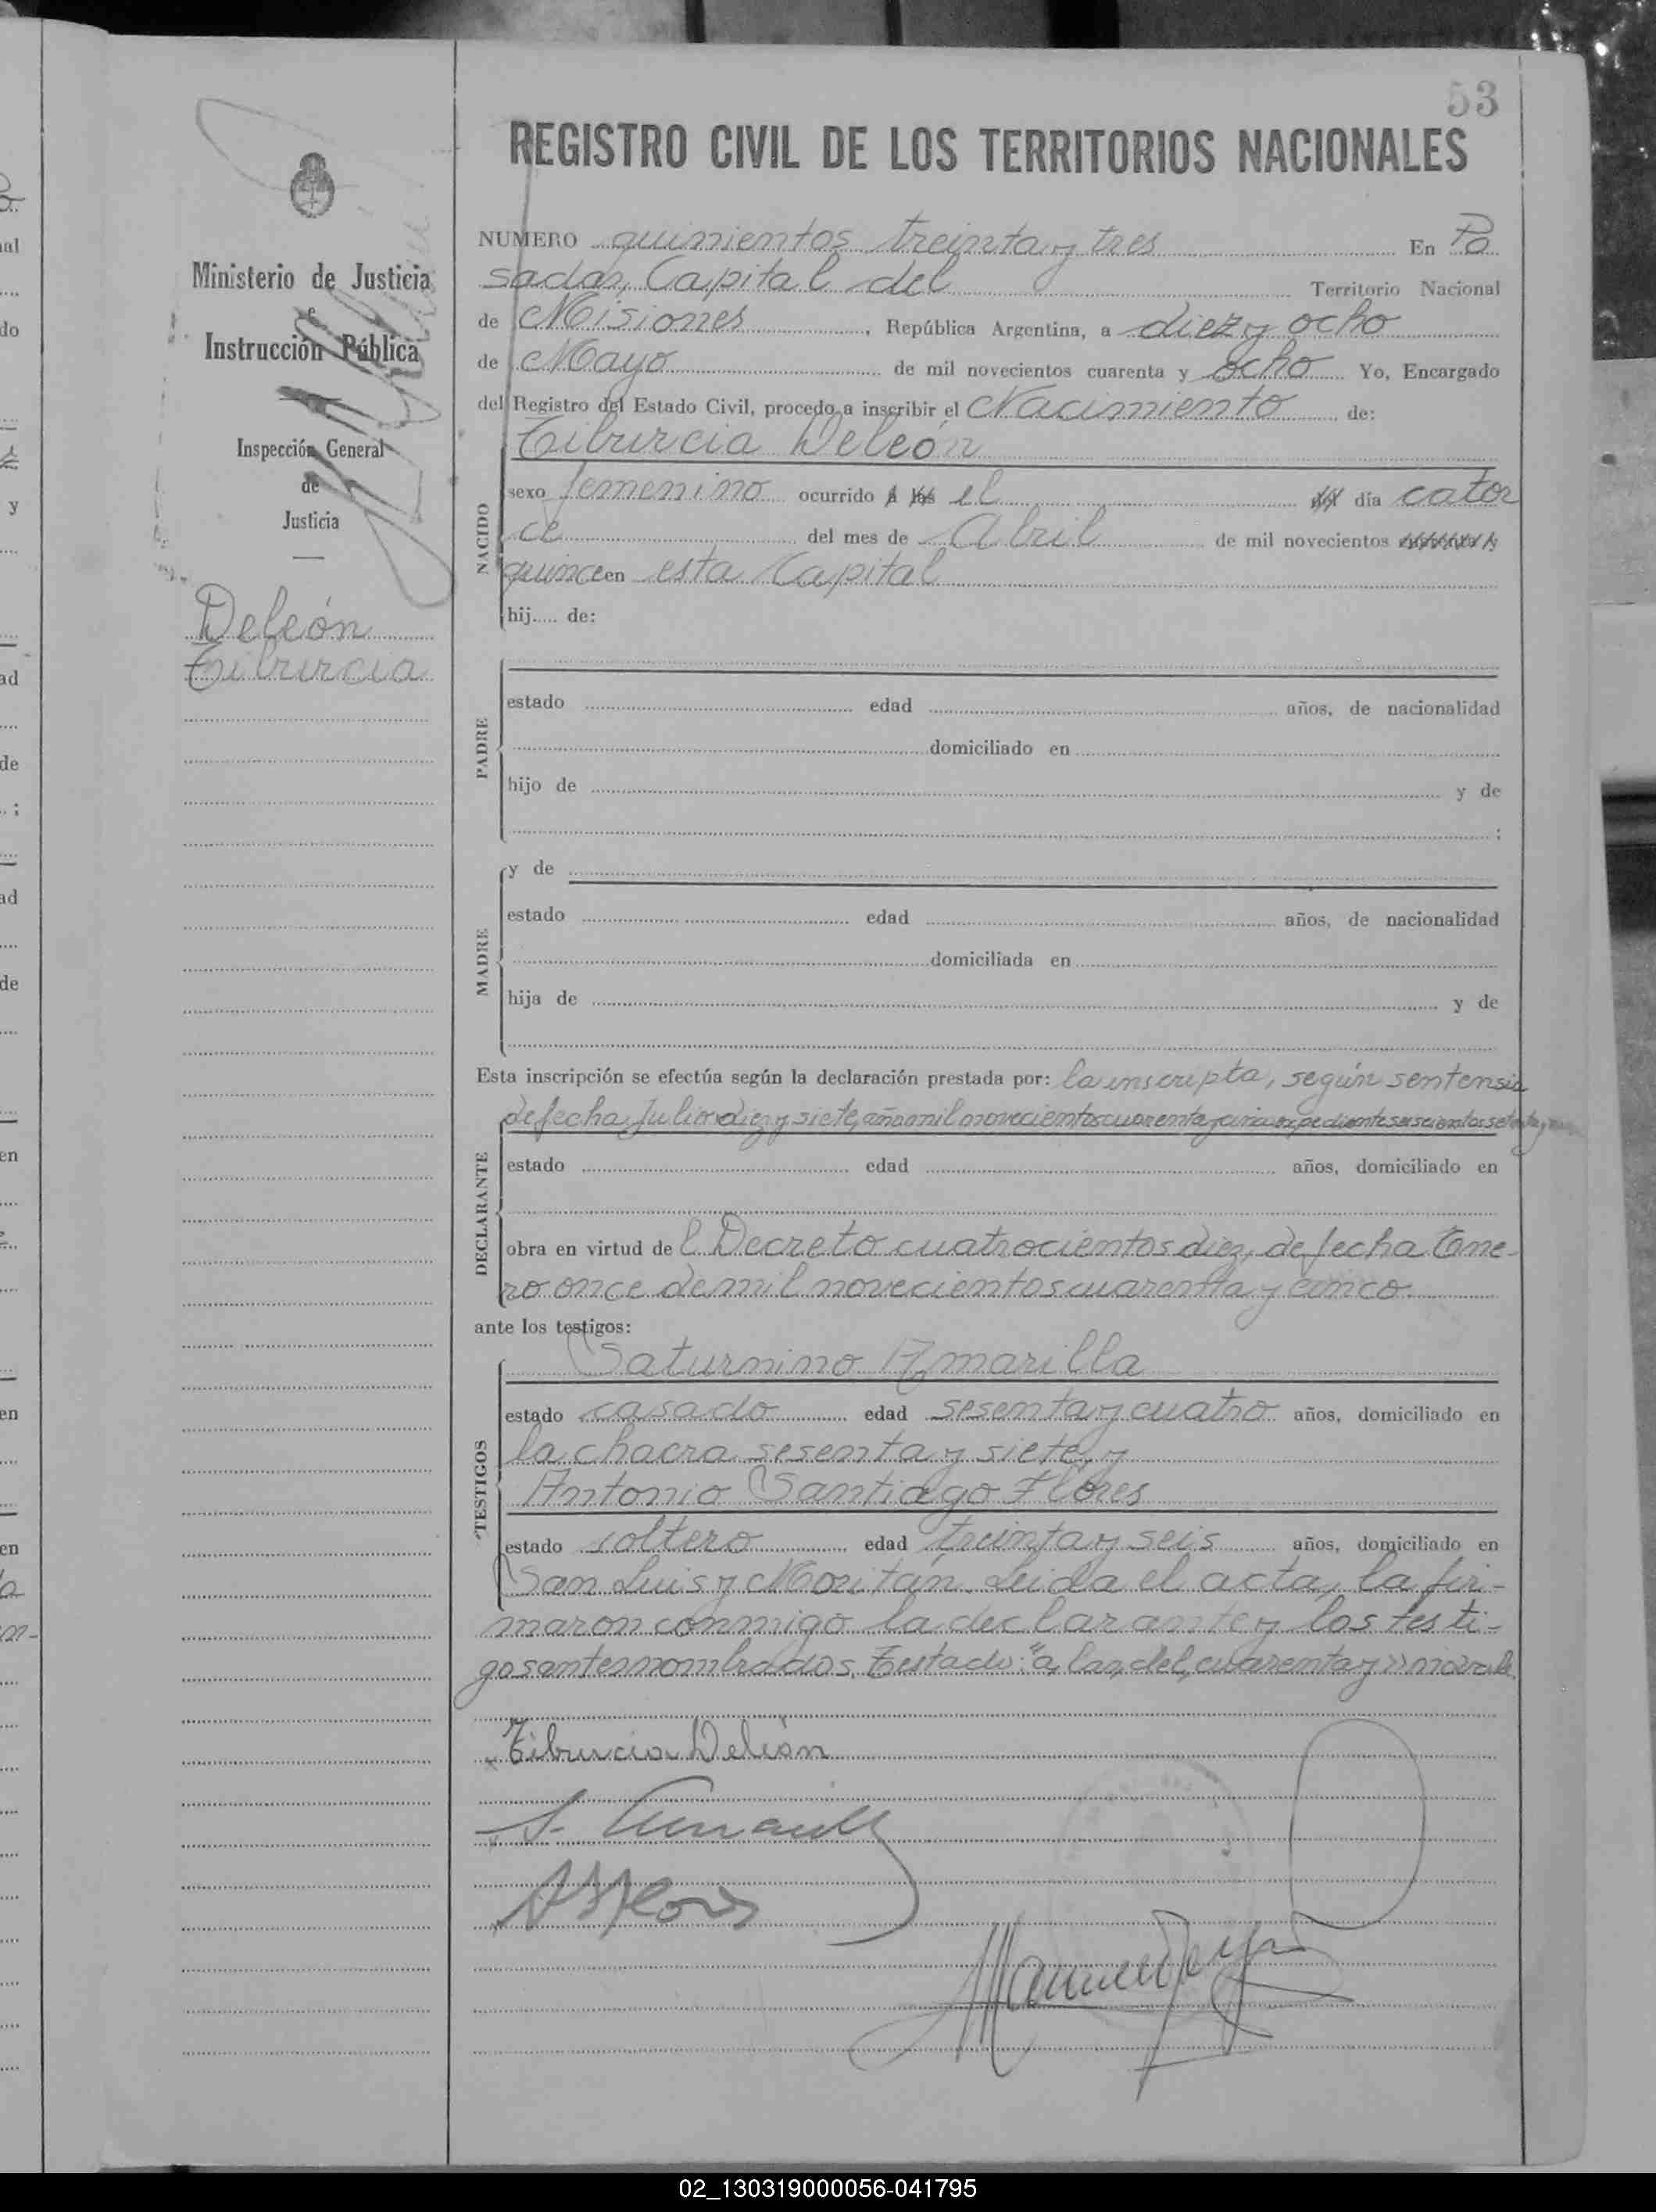 53
REGISTRO CIVIL DE LOS TERRITORIOS NACIONALES
Ministerio de Justicia
e
Instrucción Pública
Inspección General
de
Justicia
Deleón
Tiburcia
NUMERO quinientos treinta y tres En Po
sadas, Capital del Territorio Nacional
de Misiones, República Argentina, a diez y ocho
de Mayo de mil novecientos cuarenta y ocho Yo, Encargado
del Registro del Estado Civil, procedo a inscribir el Nacimiento de:
NACIDO
Tiburcia Deleón
sexo femenino ocurrido a las el del día cator
ce del mes de Abril de mil novecientos
quince en esta Capital
hij..... de:
PADRE
estado edad años, de nacionalidad
domiciliado en
hijo de y de
:
MADRE
y de
estado edad años, de nacionalidad
domiciliada en
hija de y de
Esta inscripción se efectúa según la declaración prestada por: la inscripta, según sentensia
DECLARANTE
de fecha, Julio diez y siete, año mil novecientos cuarenta y expediente seiscientos
estado edad años, domiciliado en
obra en virtud de l Decreto cuatrocientos diez, de fecha Ene-
ro once de mil novecientos cuarentta y cinco.
ante los testigos:
TESTIGOS
Saturnino Amarilla
estado casado edad sesenta y cuatro años, domiciliado en
la chacra sesenta y siete, y
Antonio Santiago Flores
estado soltero edad treinta y seis años, domiciliado en
San Luis y Moritán. Leida el acta, la fir-
maron conmigo la declarante y los testi-
gos antes nombrados. Testado: "a, las, del, cuarenta y" no vale
Tiburcia Deleón
02_130319000056-041795